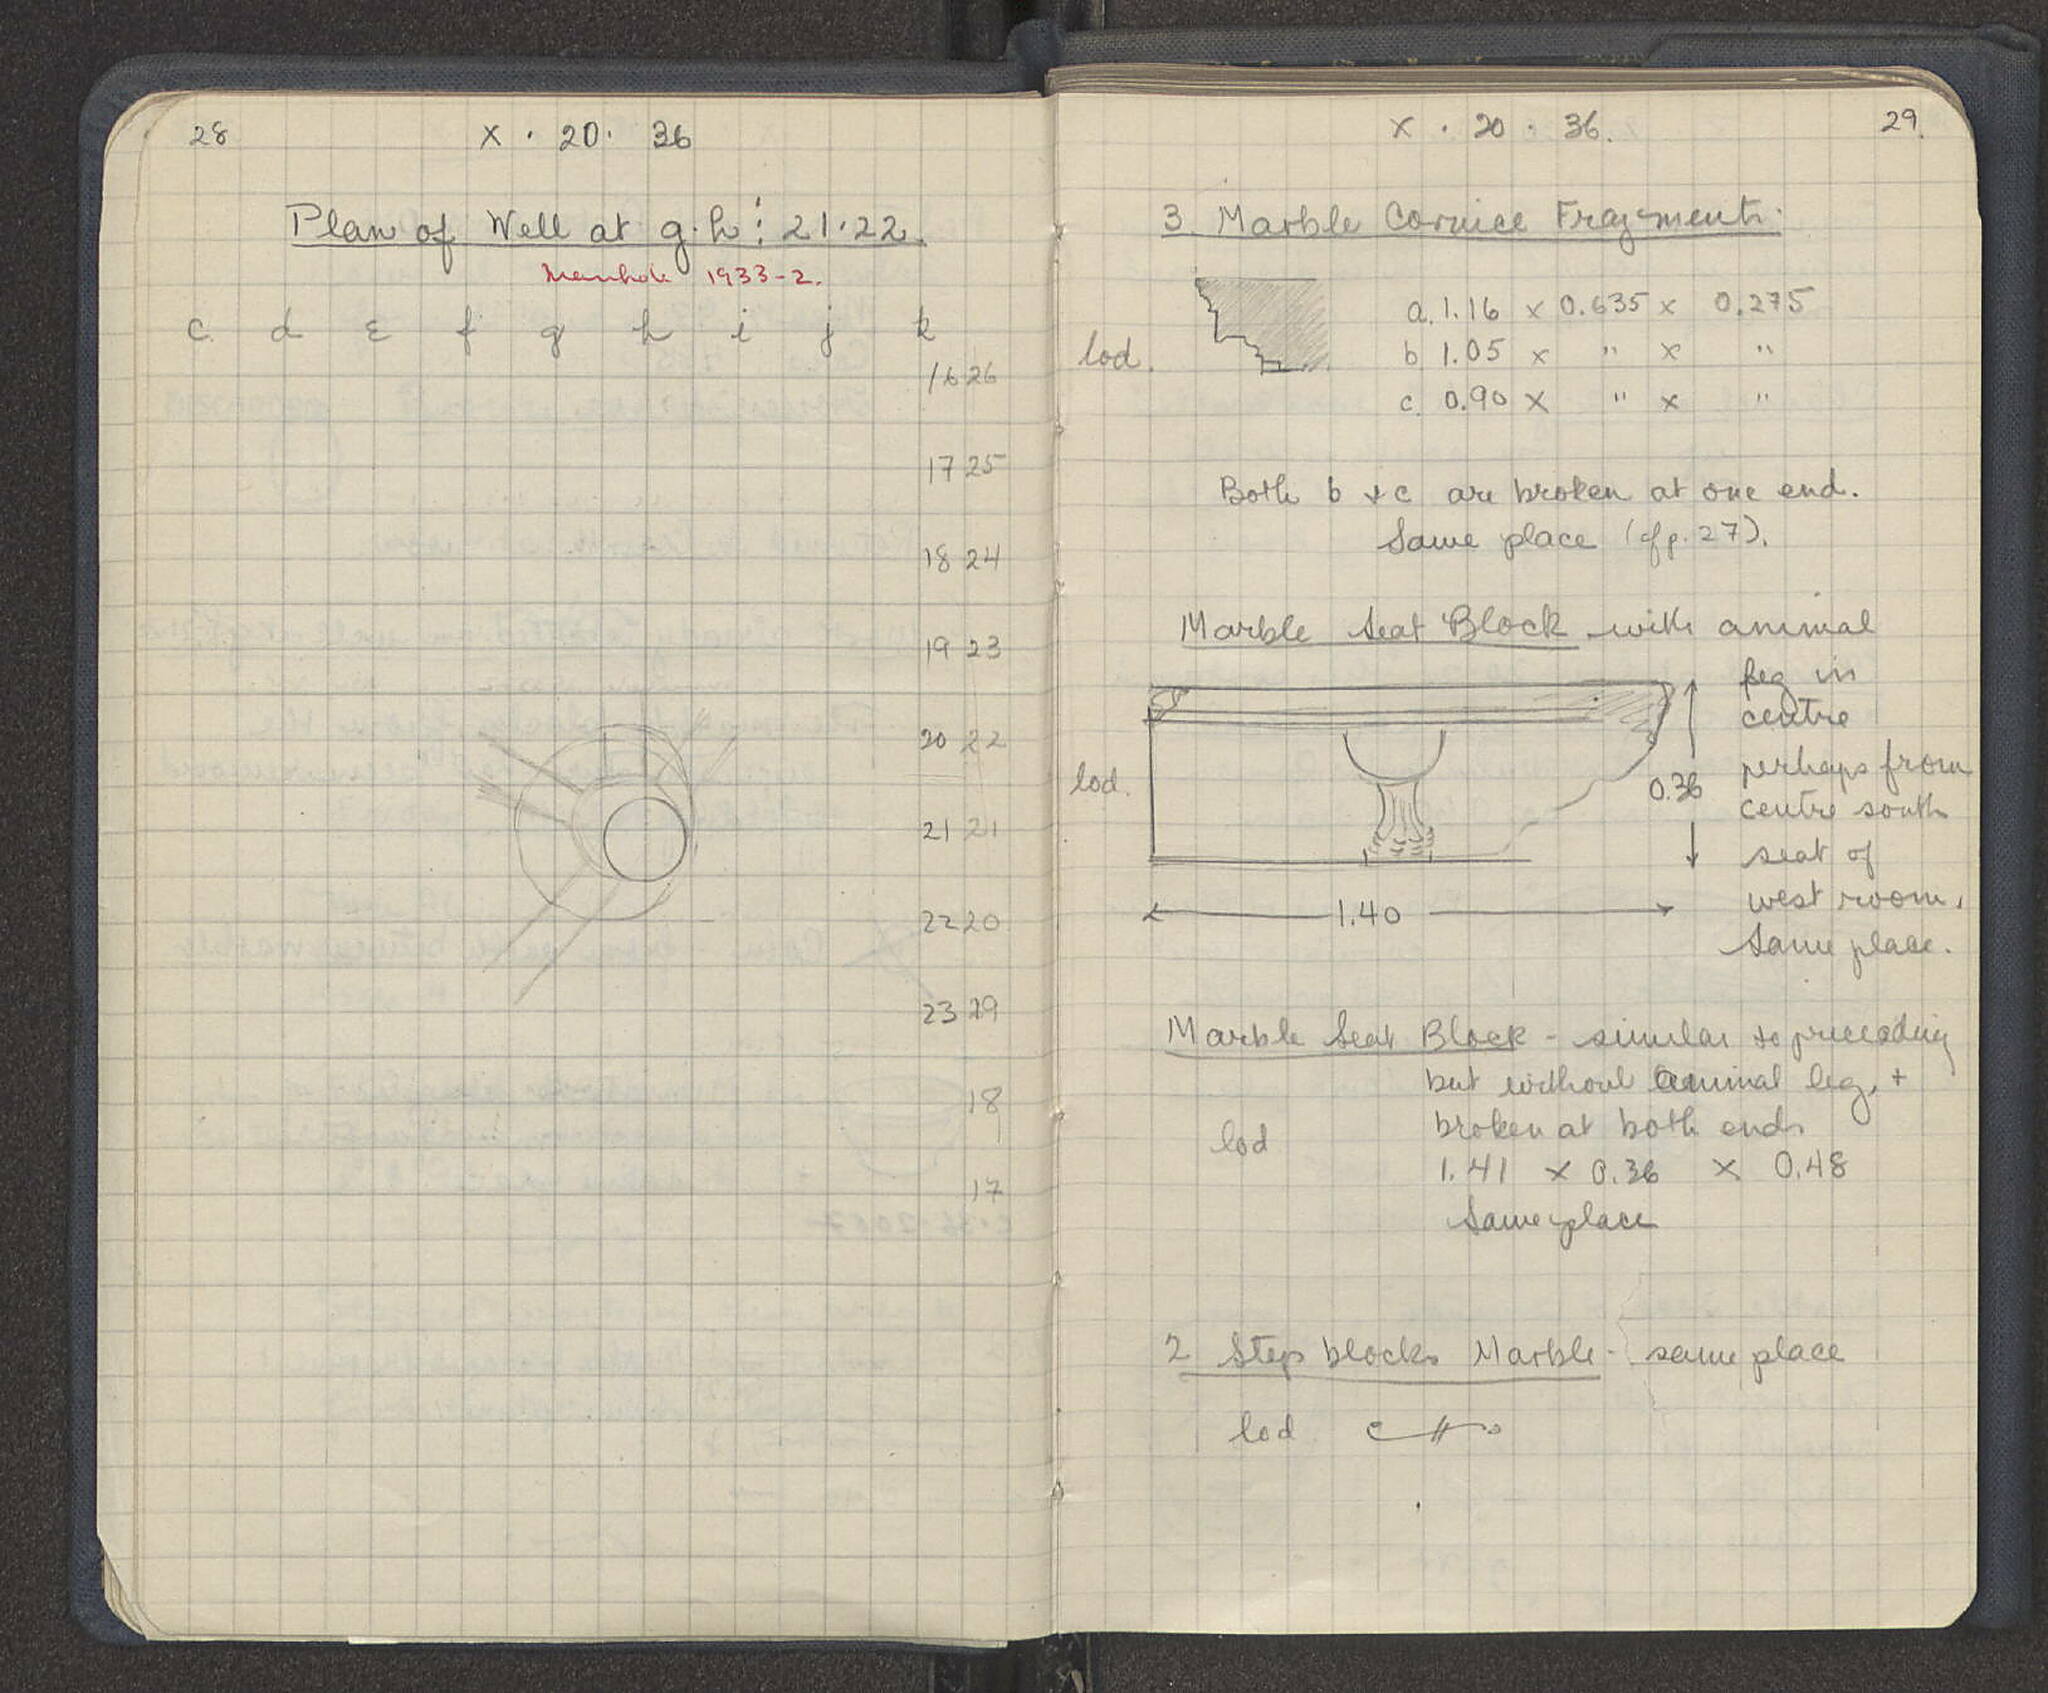 28
x · 20 · 36
Plan of Well at g·h : 21·22.
Manhole 1933-2.
c d ε f g h i j k
16 26
17 25
18 24
19 23
20 22
21 21
22 20
23 19
18
17
x · 20 · 36.
29.
3 Marble Cornice Fragments.
a. 1.16 x 0.635 x 0.275
lod.
b 1.05 x " x "
c. 0.90 x " x "
Both b + c are broken at one end.
Same place (cf p. 27).
Marble Seat Block with animal
leg in
centre
perhaps from
lod.
0.36
centre south
seat of
1.40
west room,
Same place.
Marble Seat Block - similar to preceding
but without animal leg, +
broken at both ends
lod
1.41 x 0.36 x 0.48
Same place
2 Step blocks Marble - same place
lod